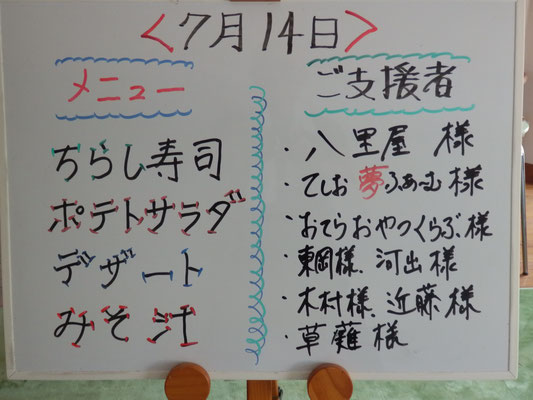 ＜7月14日＞
メニュー
ちらし寿司
ポテトサラダ
デザート
みそ汁
ご支援者
・八里屋 様
・てしお夢ふぁーむ様
・おてらおやつくらぶ様
・東岡様、河出様
・木村様、近藤様
・草薙様